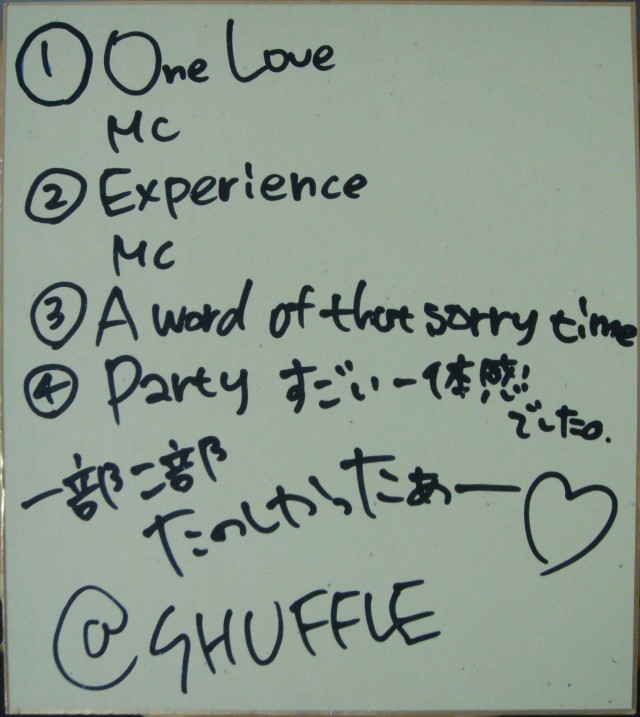 ① One Love
MC
② Experience
MC
③ A word of that sorry time
④ Party すごい一体感!
でした。
一部二部
たのしかったあー♡
@SHUFFLE